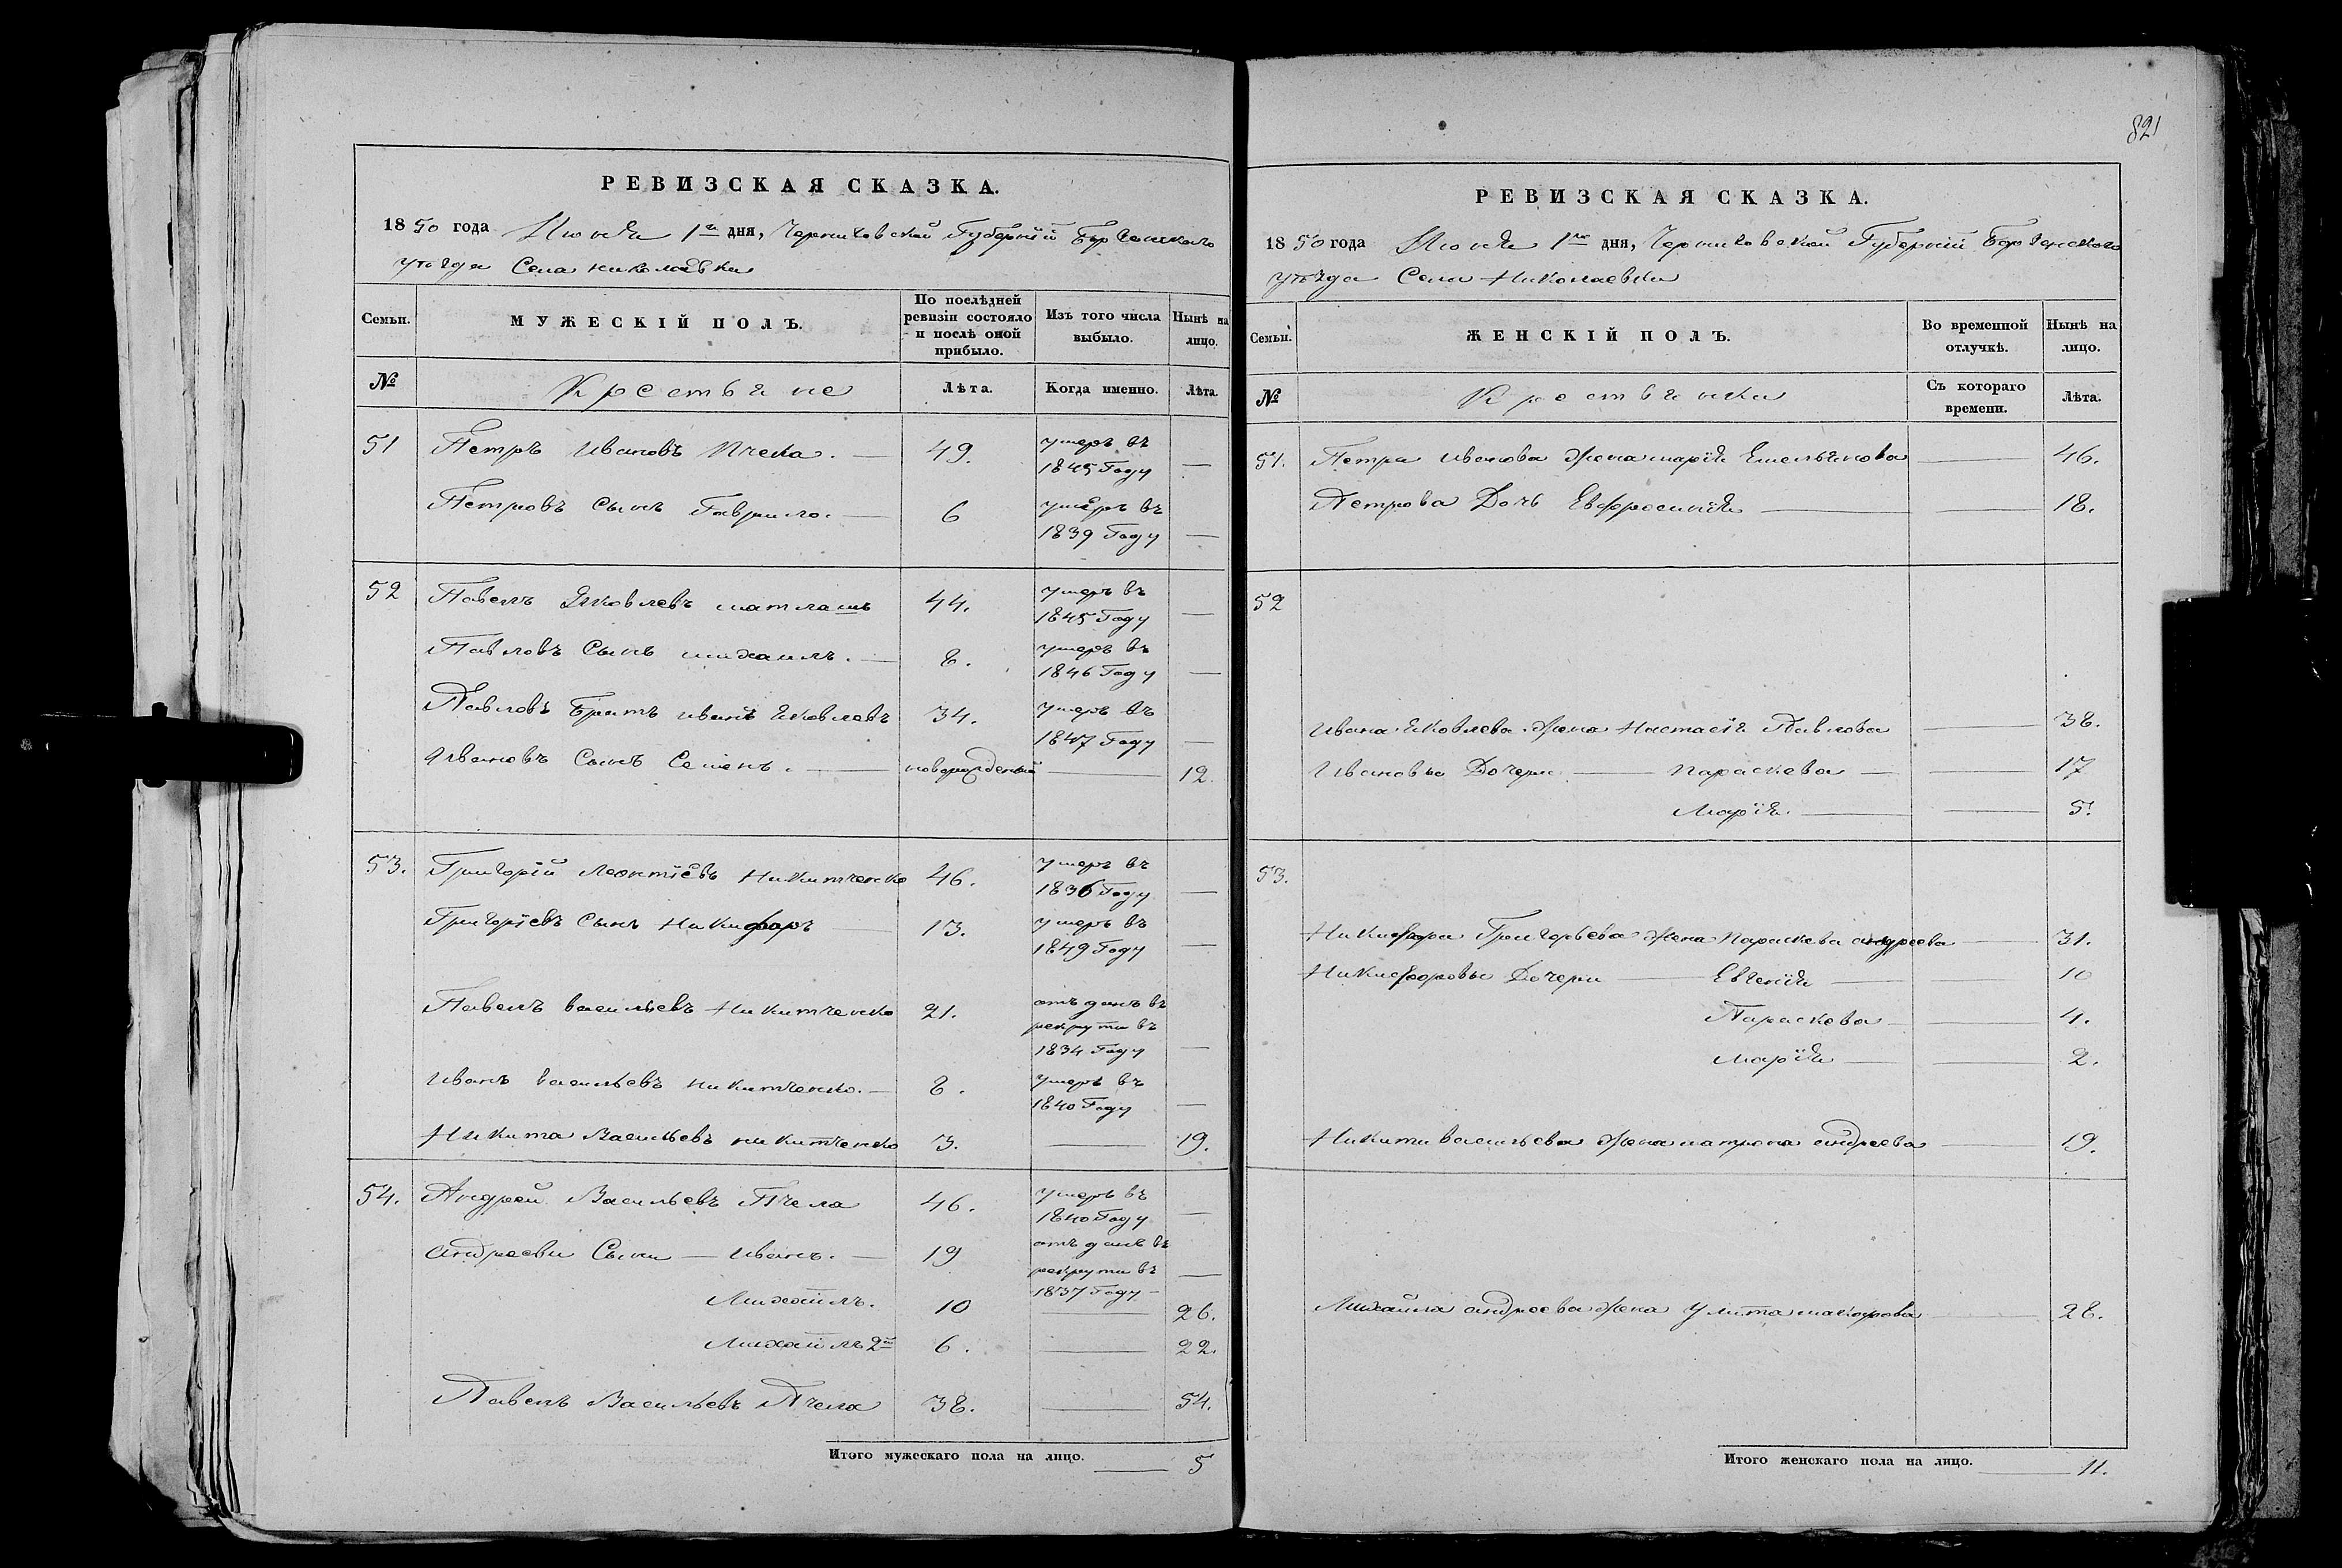 РЕВИЗСКАЯ СКАЗКА.
1850 года Июня 1го дня, Черниговской Губернии Борзенскаго
уѣзда Села Николаевки
Семьи. МУЖЕСКІЙ ПОЛЪ. По послѣдней ревизіи состояло и послѣ оной прибыло. Изъ того числа выбыло. Нынѣ на лицо.
№ Крестьяне Лѣта. Когда именно. Лѣта.
51 Петръ Ивановъ Пчела. — 49. умеръ въ
1845 Году —
Петровъ Сынъ Гаврило. — 6 умеръ въ
1839 Году —
52 Павелъ Яковлевъ 44. умеръ въ
1845 Году —
Павловъ Сынъ Михаилъ. — 8. умеръ въ
1846 Году —
Павловъ Братъ Иванъ Яковлевъ 34. умеръ въ
1847 Году —
Ивановъ Сынъ Семенъ. — новорожденный — 12.
53. Григорій Леонтіевъ Никитченко 46. умеръ въ
1836 Году —
Григоріевъ Сынъ Никифоръ — 13. умеръ въ
1849 Году —
Павелъ Васильевъ Никитченко 21. отъ данъ въ
рекрути въ
1834 Году —
Иванъ Васильевъ Никитченко. — 8. умеръ въ
1840 Году —
Никита Васильевъ Никитченко 3. — 19.
54. Андрей Васильевъ Пчела 46. умеръ въ
1840 Году —
Андреевы Сыны — Иванъ. — 19 отъ данъ въ
рекрути въ —
1837 Году —
Михаилъ. 10 — 26.
Михаилъ 2й 6. — 22.
Павелъ Васильевъ Пчела 38. — 54.
Итого мужескаго пола на лицо. — 5
821
РЕВИЗСКАЯ СКАЗКА.
1850 года Июня 1го дня, Черниговской Губерніи Борзенскаго
уѣзда Села Николаевки
Семьи. ЖЕНСКІЙ ПОЛЪ. Во временной отлучкѣ. Нынѣ на лицо.
№ Крестьянки Съ котораго времени. Лѣта.
51. Петра Иванова Жена Марія Емельянова — 46.
Петрова Дочь Евфросинія — — 18.
52
Ивана Яковлева Жена Настасія Павлова — 38.
Ивановы Дочери — Параскева — — 17
Марія. — — 5.
53.
Никифора Григорьева Жена Параскева Андреева — 31.
Никифоровы Дочери — Евгенія — — 10
Параскева — — 4.
Марія — — 2.
Никити Васильева Жена Матрона Андреева — 19.
Михаила Андреева Жена Улита — 28.
Итого женскаго пола на лицо. — 11.